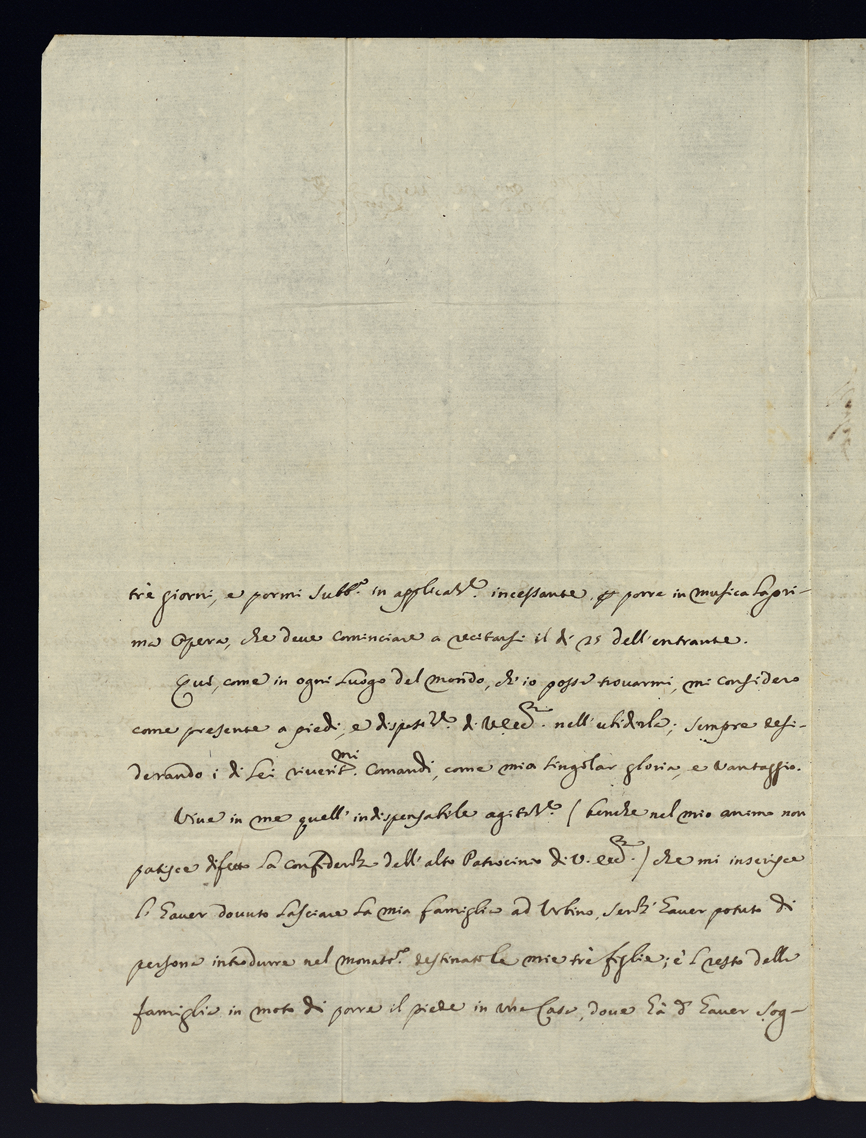 trè giorni, e pormi subb.º in applicaz.ne incessante, p porre in musica la pri-
ma Opera, che deue cominciare a recitarsi il dì 25 dell'entrante.
Quì, come in ogni Luogo del Mondo, ch'io possa trouarmi, mi considero
come presente a piedi, e disposiz.ne di V. Ecc.za nell'ubidirla; sempre desi-
derando i di Lei riuerit.mi Comandi, come mia singolar gloria, e Vantaggio.
Viue in me quell'indispensabile agitaz.ne (benche nel mio animo non
patisce difetto la confidenza dell'alto Patrocinio di V. Ecc.za) che mi inserisce
l'hauer douuto Lasciare La mia famiglia ad Urbino, senza hauer potuto di
persona introdurre nel Monast.º destinato le mie trè figlie; è l resto della
famiglia in moto di porre il piede in una Casa, doue hà d' hauer sog-